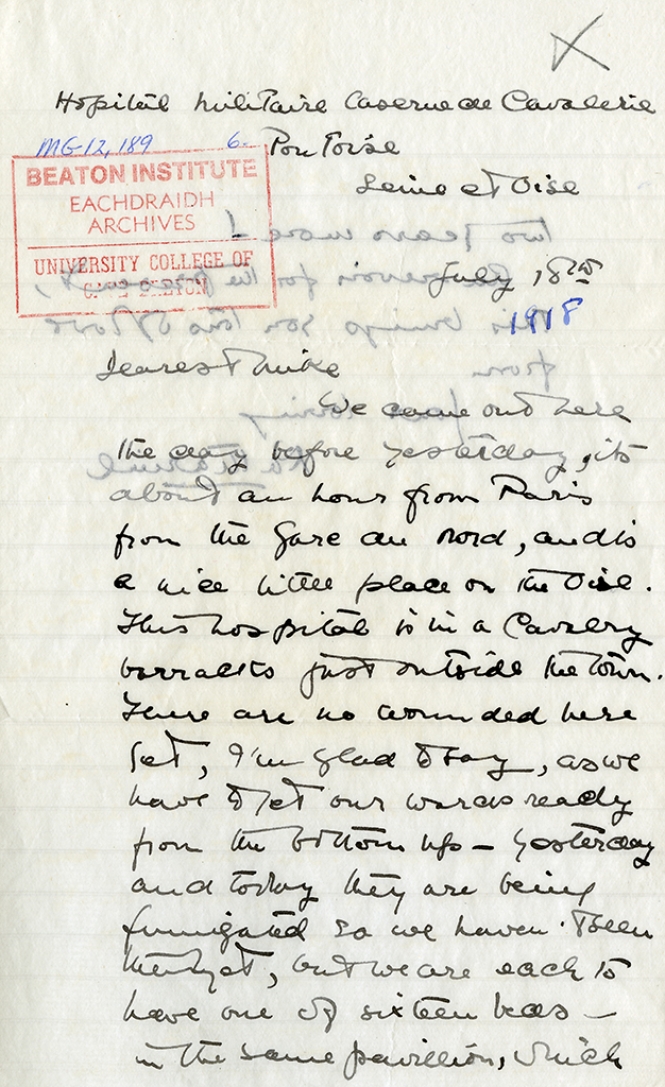 Hopital Militaire Caserne de Cavalerie
MG-12, 189 6. Pontoise
BEATON INSTITUTE
EACHDRAIDH
ARCHIVES
UNIVERSITY COLLEGE OF
CAPE BRETON
Seine et Oise
July 18th
1918
Dearest Mike
We came out here
the day before yesterday, its
about an hour from Paris
from the Gare du Nord, and is
a nice little place on the Oise.
This hospital is in a Cavalry
barracks just outside the town.
There are no wounded here
yet, I'm glad to say, as we
have to get our wards ready
from the bottom up – yesterday
and today they are being
fumigated so we haven't been
there yet, but we are each to
have one of sixteen beds –
in the same pavillion, which